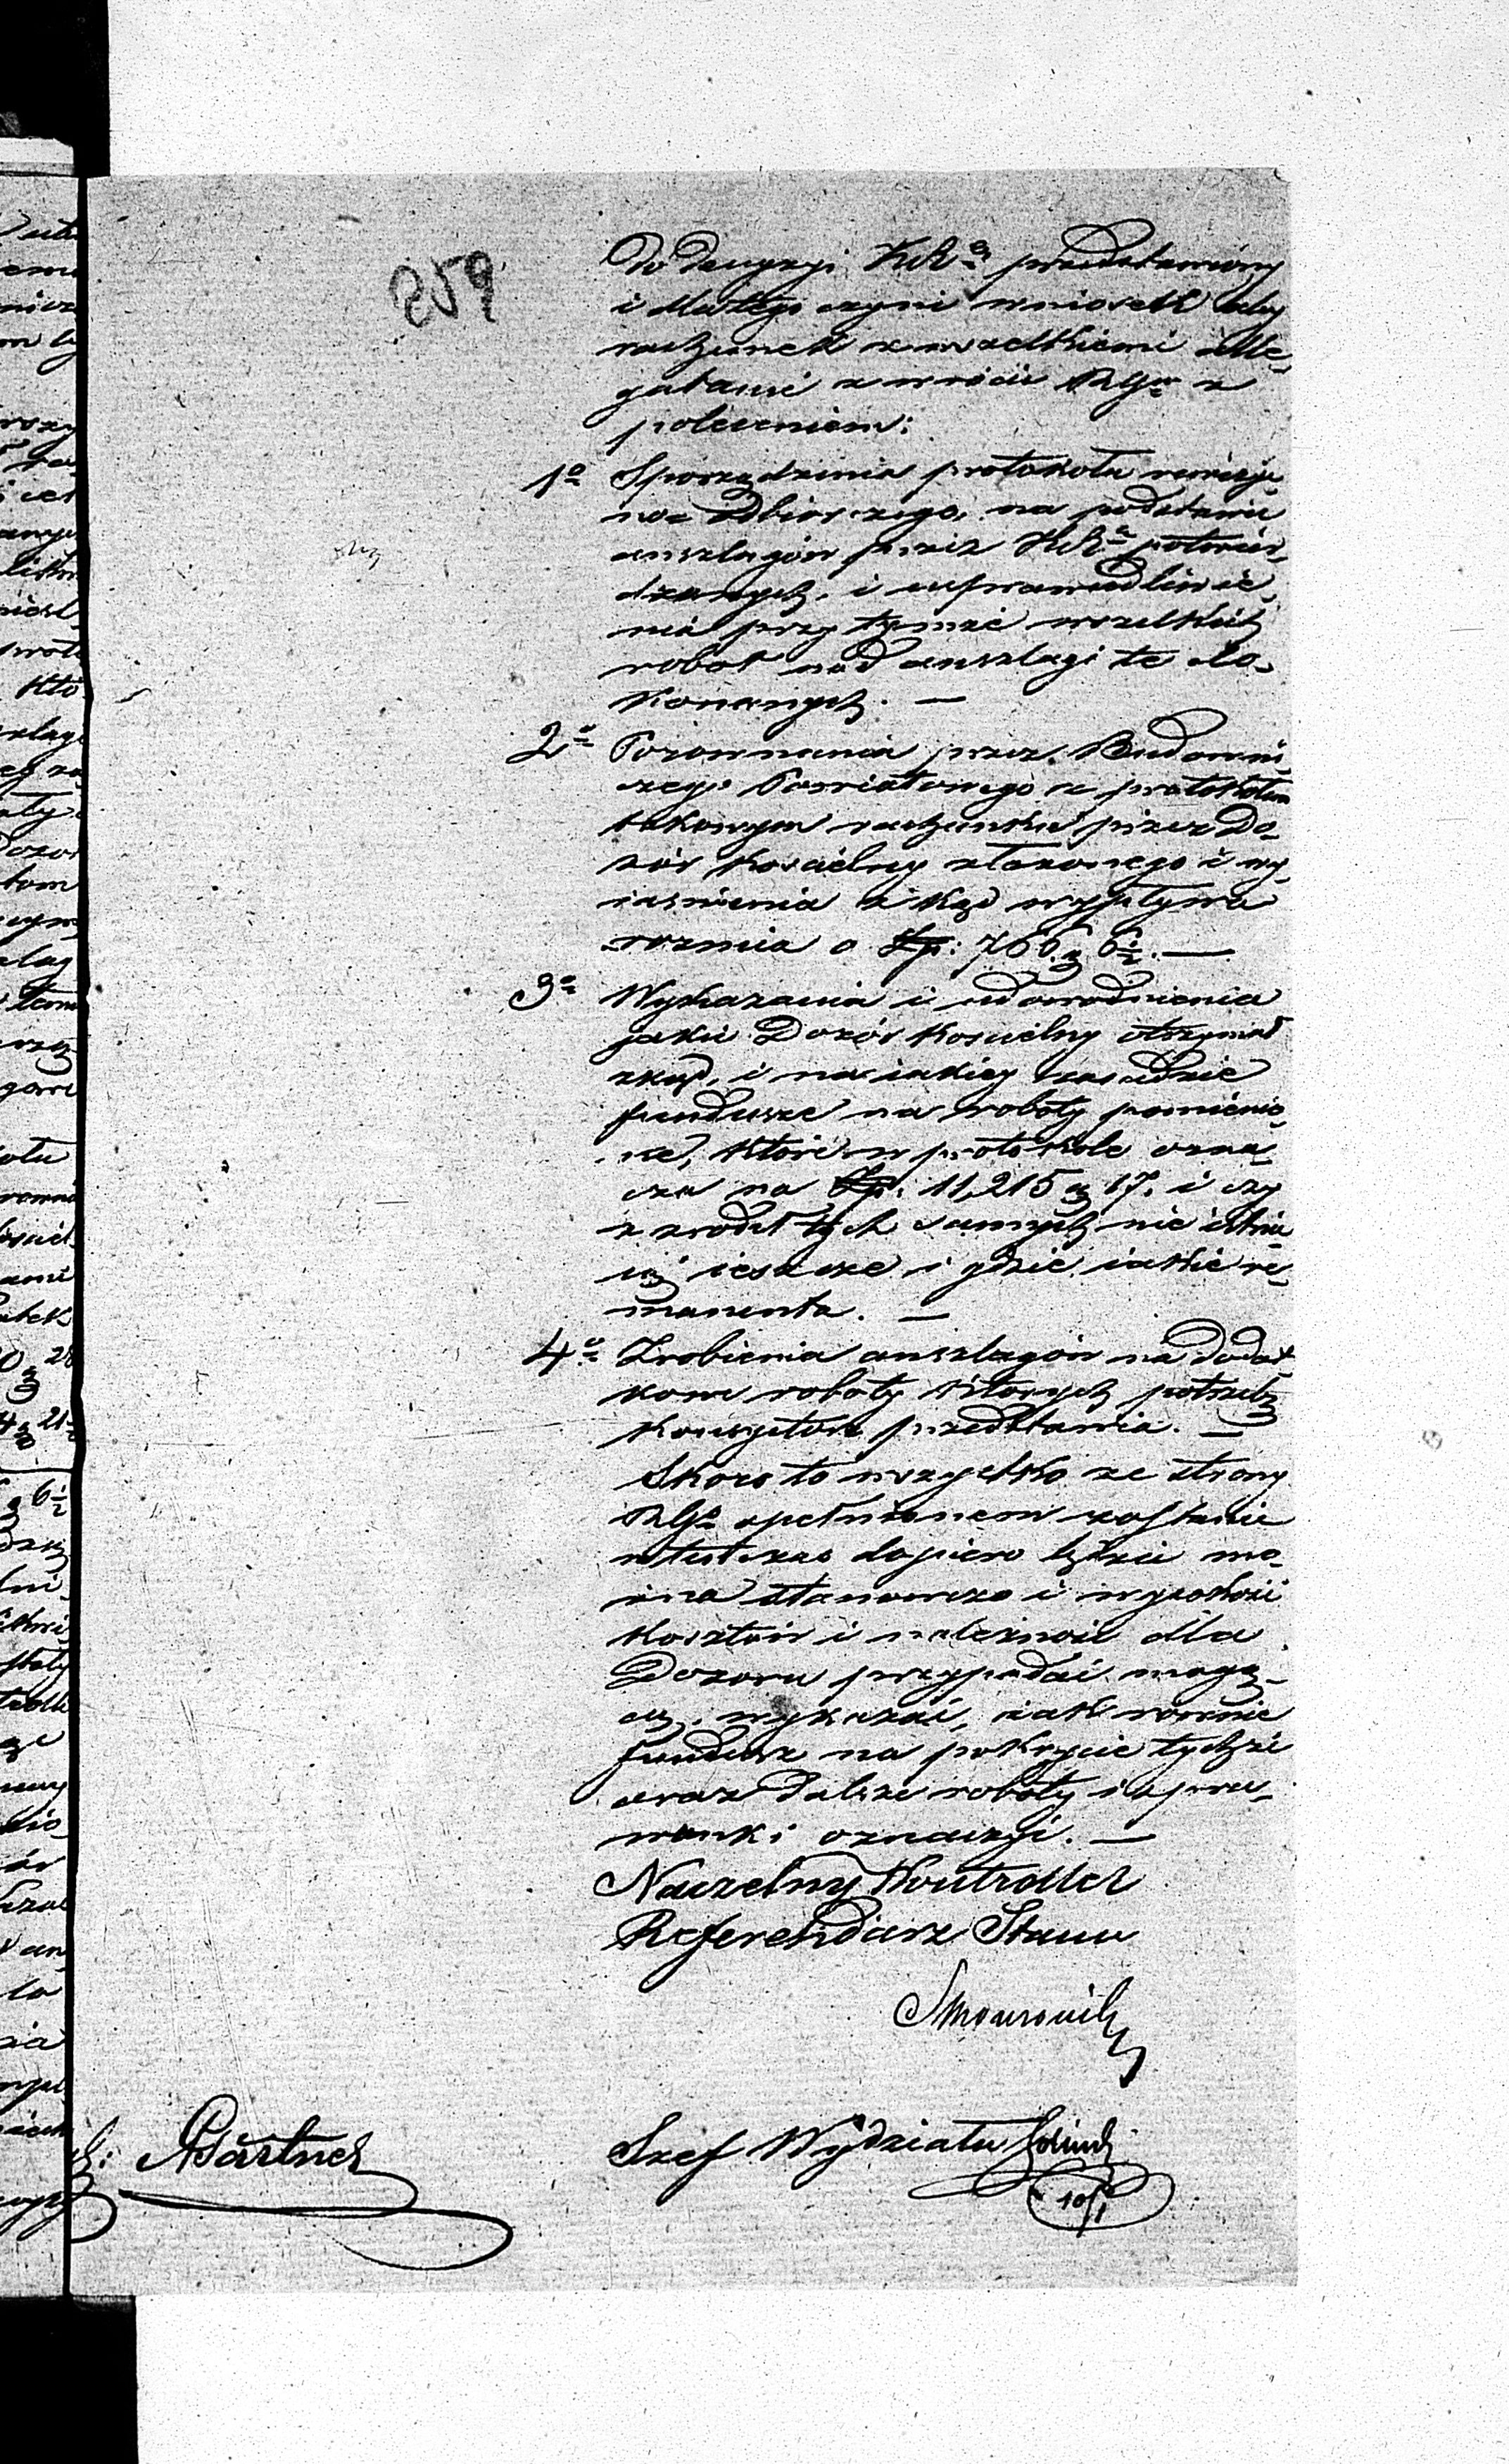 259
do decyzyi KRn przedstawiony
i dla tego czyni wniosek aby
rachunek z wszelkiemi alle-
gatami zwrócić RGn z
poleceniem:
1o Sporządzenia protokołu rewizyi-
no-odbiorczego, na podstawie
anszlagów przez KRn potwier-
dzonych, i usprawiedliwie-
nia przy tymże wszelkich
robot nad anszlagi te do-
konanych. —
2o Porownania przez Budowni-
czego Powiatowego z protokółem
takowym rachunku przez Do-
zór Kościelny złożonego i wy-
iasnienia z kąd wypływa
roznica o Zp: 766 g 6½. —
3o Wykazania i udowodnienia
jakie Dozór Kościelny otrzymał
zkąd, i na iakiey zasadzie
fundusze na roboty pomienio-
ne, które w protokole ozna-
cza na Zp: 11,215 g 17. i czy
z zrodeł tych samych nie istnie-
ią ieszcze i gdzie iakie re-
manenta. —
4o Zrobienia anszlagów na dodat-
kowe roboty których potrzebę
Konsystorz przedstawia. —
Skoro to wszystko ze strony
RGn spełnionem zostanie
wtedczas dopiero będzie mo-
żna stanowczo i wysokość
kosztów i należność dla
Dozoru przypadać mogą-
cą, wykazać, iak rownie
fundusz na pokrycie tychże
oraz dalsze roboty i spra-
wunki oznaczyć. —
Naczelny Kontroller
Referendarz Stanu
Szef Wydziału
10/1